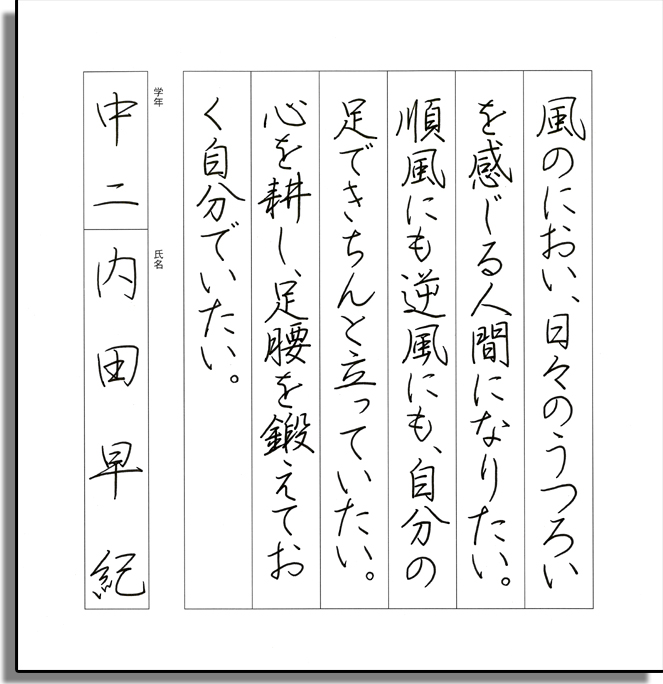 風のにおい、日々のうつろい
を感じる人間になりたい。
順風にも逆風にも、自分の
足できちんと立っていたい。
心を耕し、足腰を鍛えてお
く自分でいたい。
学年
中二
氏名
内田早紀